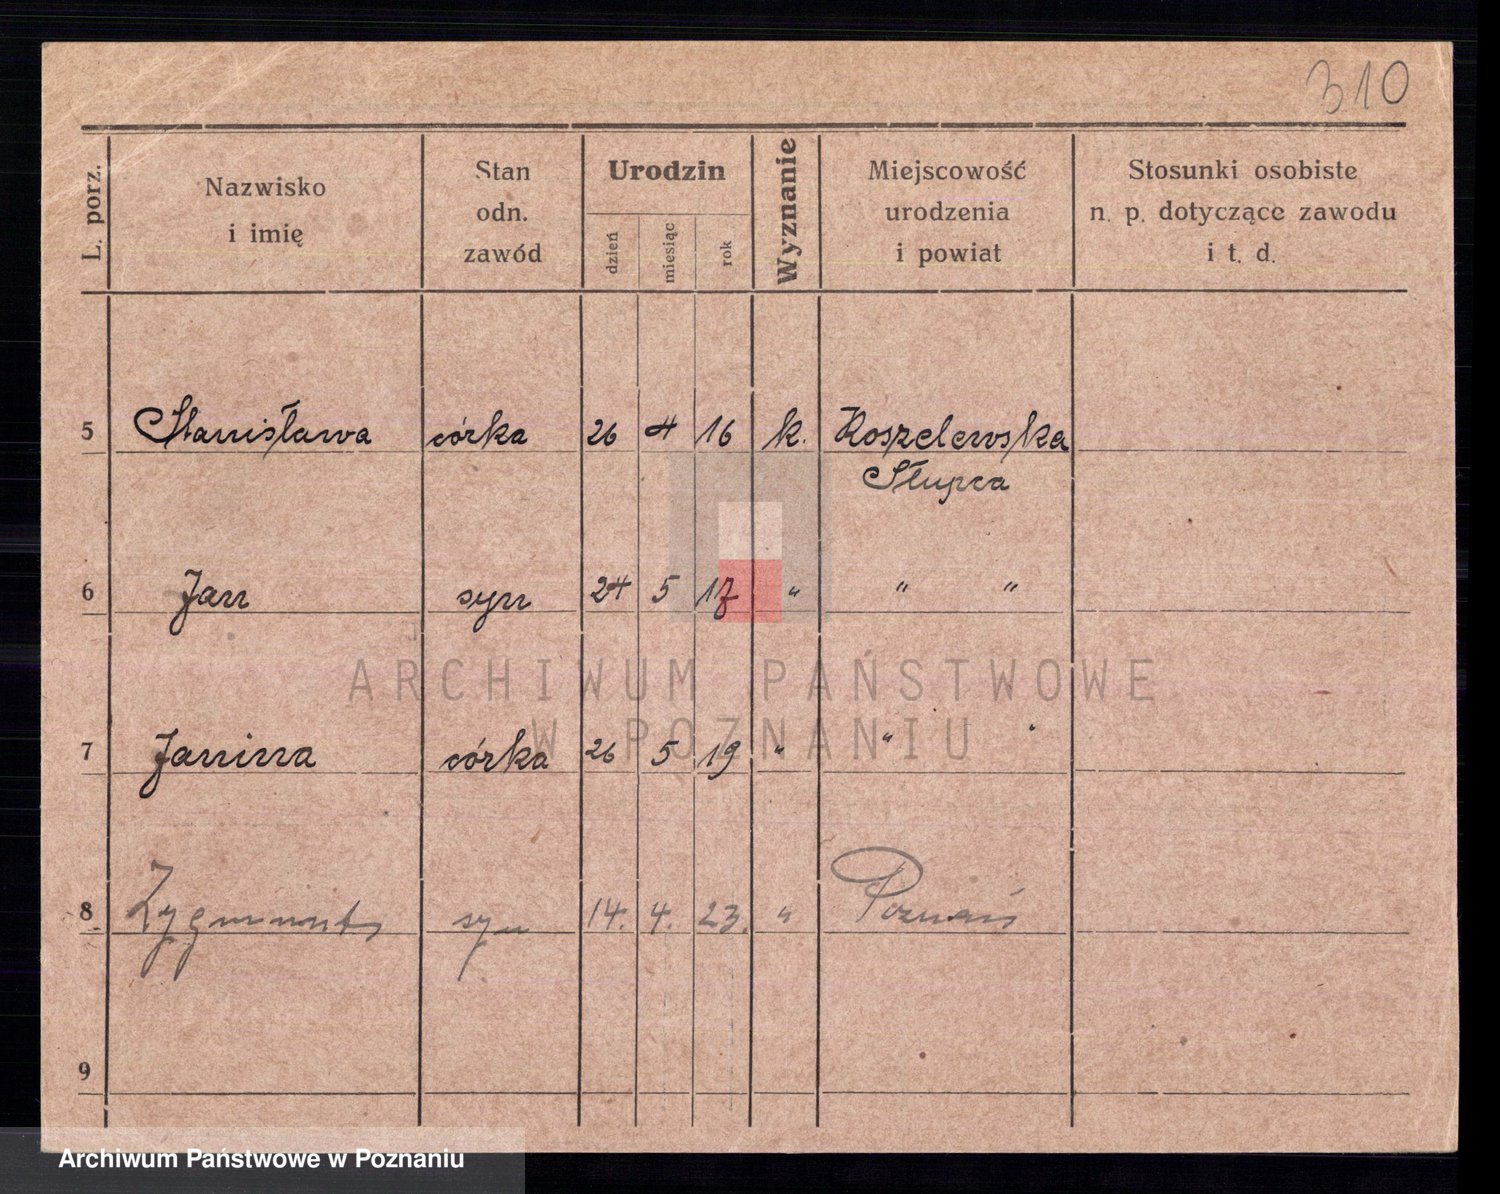 310
L. porz.
Nazwisko
i imię
Stan
odn.
zawód
Urodzin
dzień
miesiąc
rok
Wyznanie
Miejscowość
urodzenia
i powiat
Stosunki osobiste
n. p. dotyczące zawodu
i t. d.
5 Stanisława córka 26 4 16 k. Koszelewska
Słupca
6 Jan syn 24 5 17 " " "
ARCHIWUM PAŃSTWOWE
W POZNANIU
7 Janina córka 26 5 19 " " "
8 Zygmunt syn 14. 4. 23. " Poznań
9
Archiwum Państwowe w Poznaniu